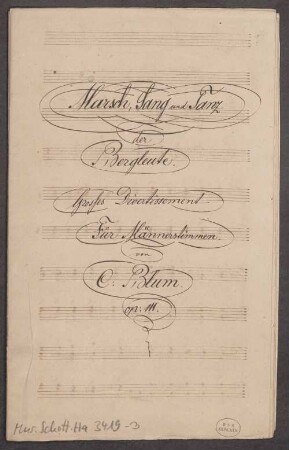 Marsch, Sang und Tanz
der
Bergleute.
Großes Divertissement
Für Männerstimmen
von
C. Blum.
op: 111.
Mus. Schott. Ha 3419-3